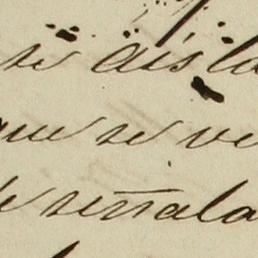 se aisla
que se ve
señala